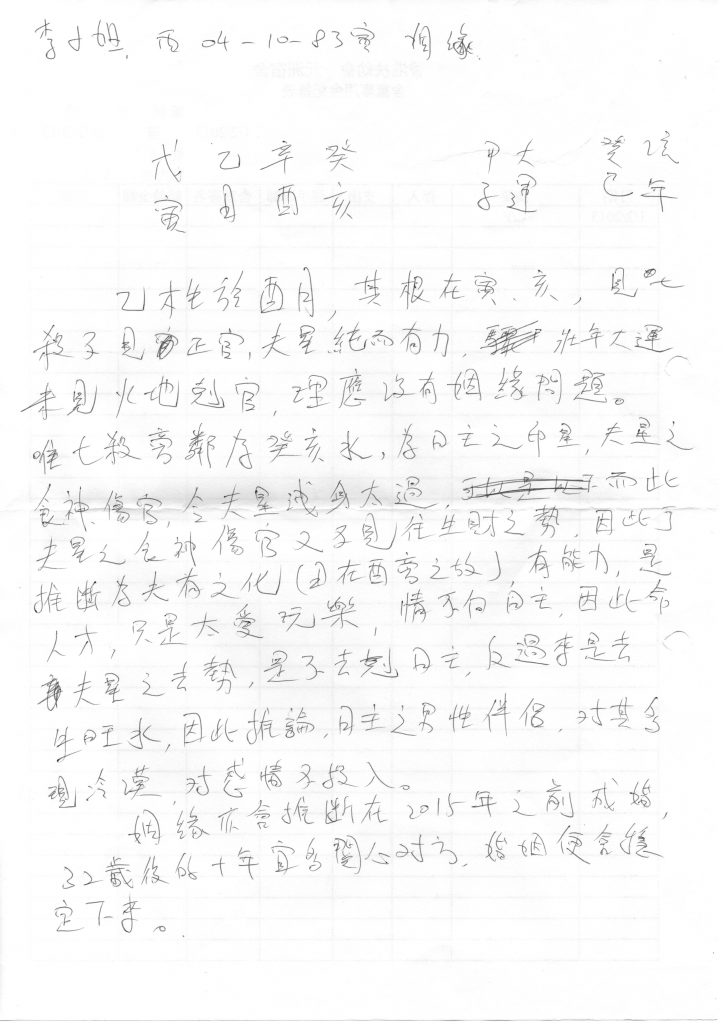 李小姐, 西 04-10-83 寅 姻緣.
戊 乙 辛 癸 甲 大 癸 流
寅 丑 酉 亥 子 運 巳 年
乙木生於酉月, 其根在寅、亥, 見七
殺不見正官, 夫星純而有力, 壯年大運
未見火地剋官, 理應沒有姻緣問題。
唯七殺旁鄰為癸亥水, 為日主之印星, 夫星之
食神、傷官, 令夫星洩身太過, 而此
夫星之食神傷官又不見往生財之勢, 因此可
推斷為夫有文化(丑在酉旁之故)有能力, 是
人才, 只是太愛玩樂, 情不自主, 因此命
夫星之去勢, 是不去剋日主, 反過來是去
生旺水, 因此推論, 日主之男性伴侶, 對其多
現冷漠, 對感情不投入。
姻緣亦會推斷在2015年之前成婚,
32歲後的十年宜多關心對方, 婚姻便會穩
定下來。